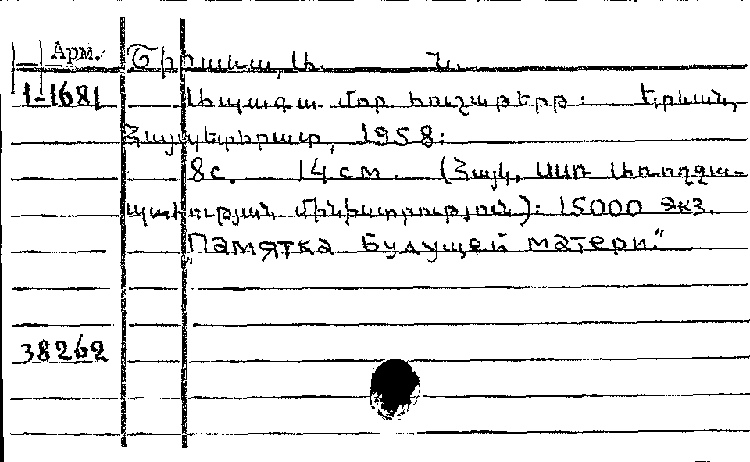 Арм.
1-1681 Ապագա մոր հուշաթերթ: Երևան,
Հայպետհրատ, 1958:
8с. 14 см. (Հայկ. ՍՍՌ Առողջա-
պահության մինիստրություն): 15000 экз.
"Памятка будущей матери."
38262